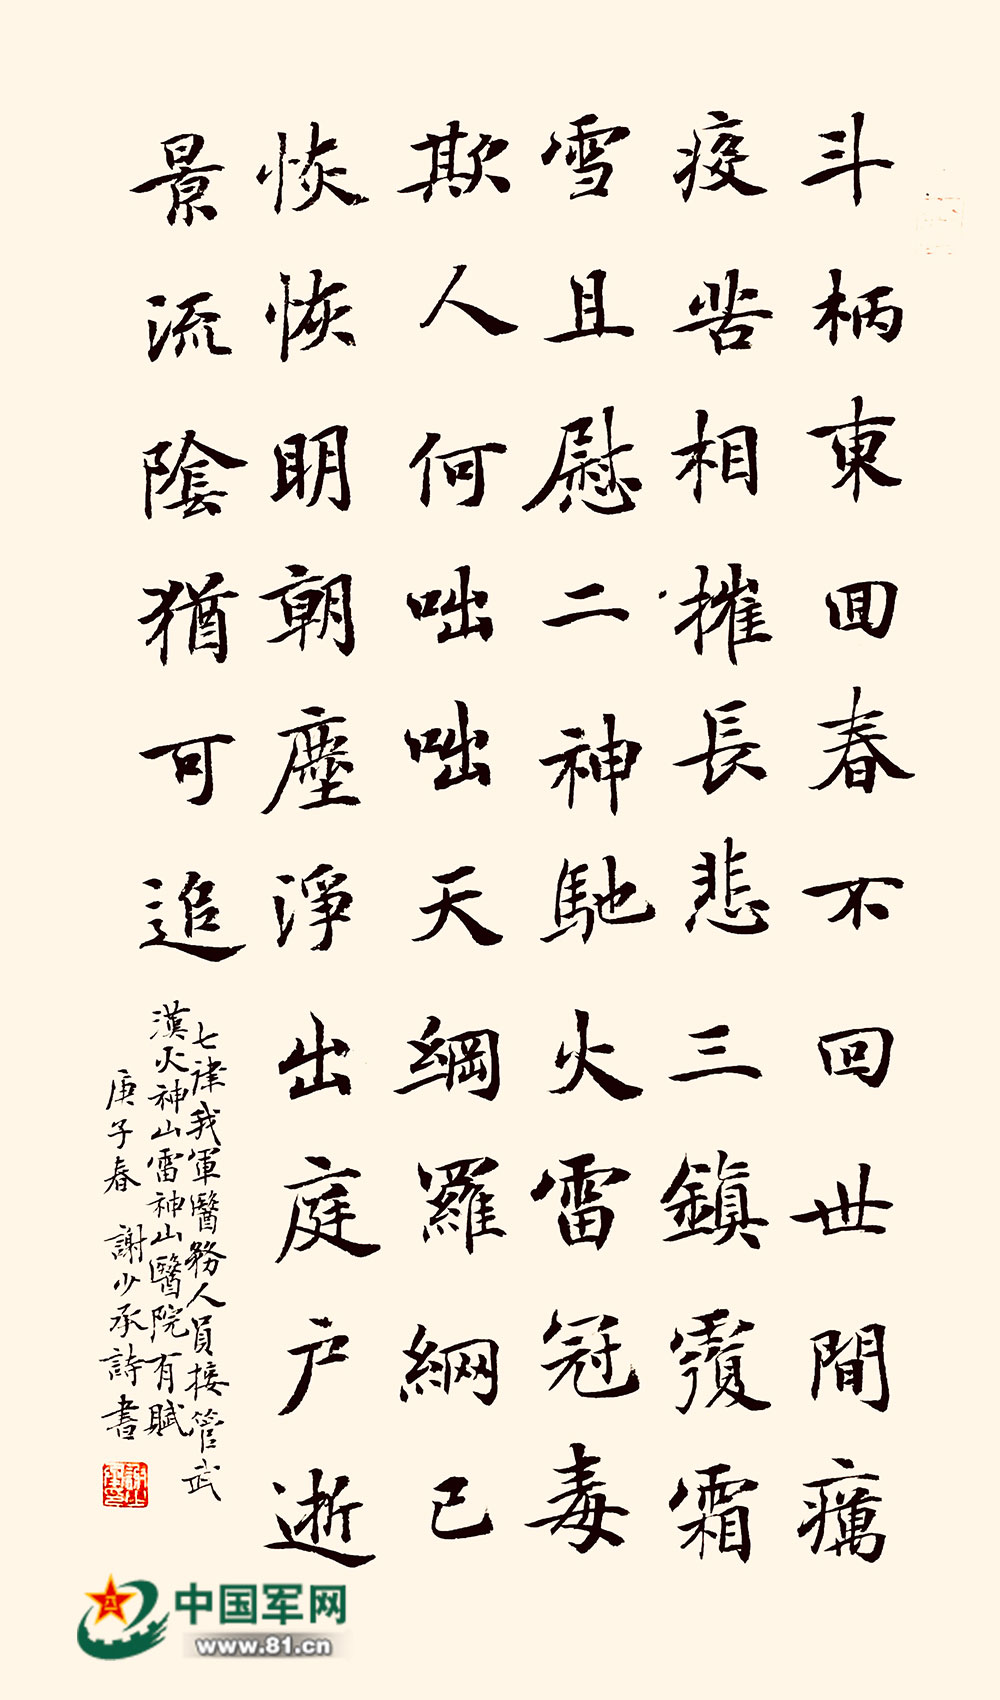 斗柄東囬春不回世間癘
疫苦相摧長悲三鎮覆霜
雪且慰二神馳火雷冠毒
欺人何咄咄天綱羅網已
恢恢明朝塵淨出庭户逝
景流陰猶可追
七律我軍醫務人員接管武
漢火神山雷神山醫院有賦
庚子春 謝少承詩書
中国军网
www.81.cn